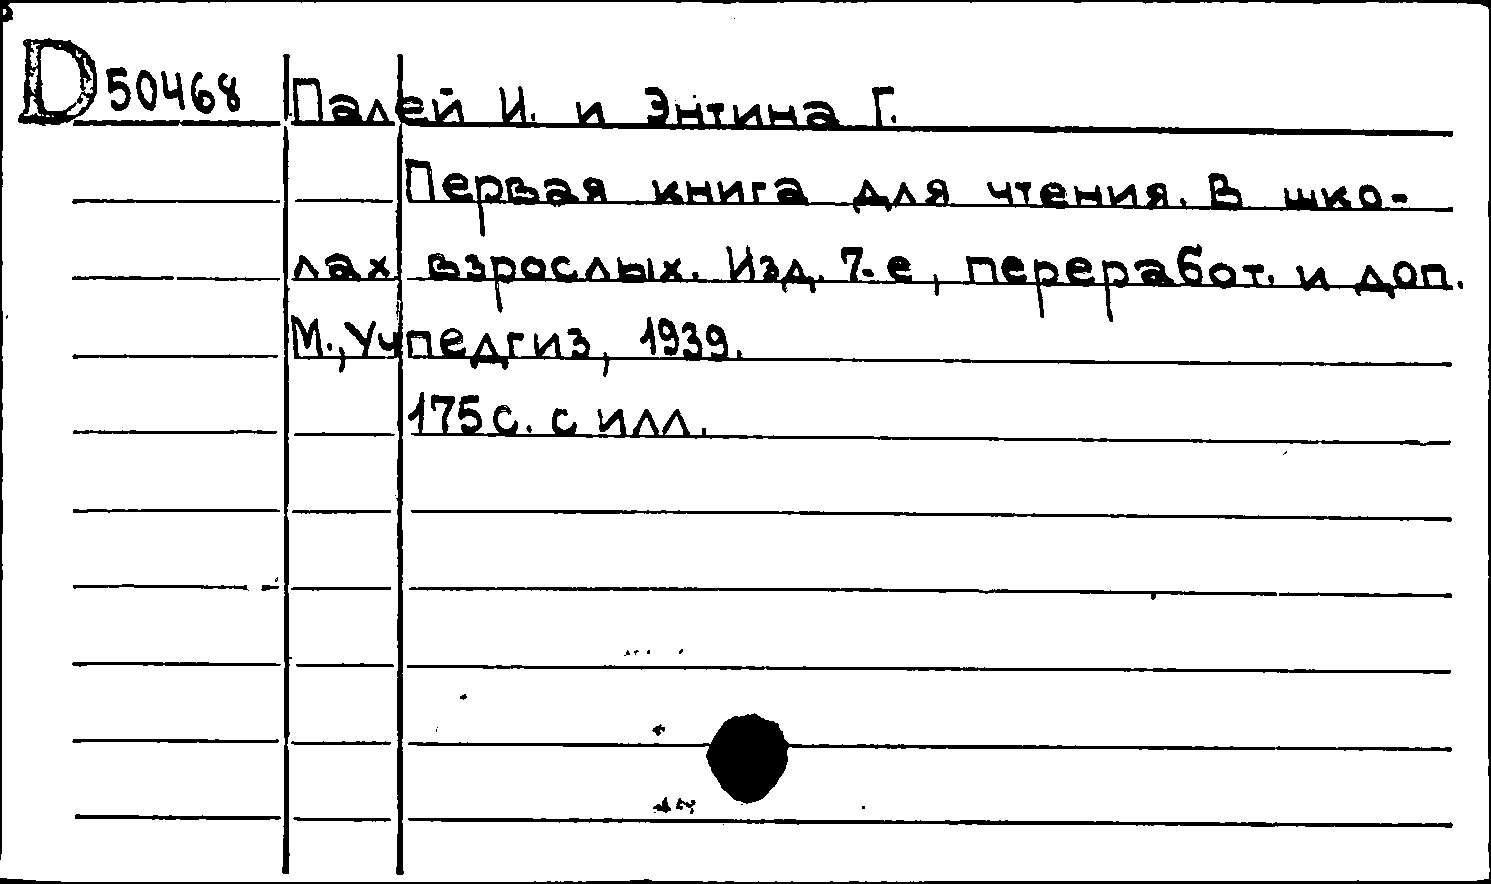 D 50468 Палей И. и Энтина Г.
Первая книга для чтения. В шко-
лах взрослых. Изд. 7-е, переработ. и доп.
М., Учпедгиз, 1939.
175 с. с илл.